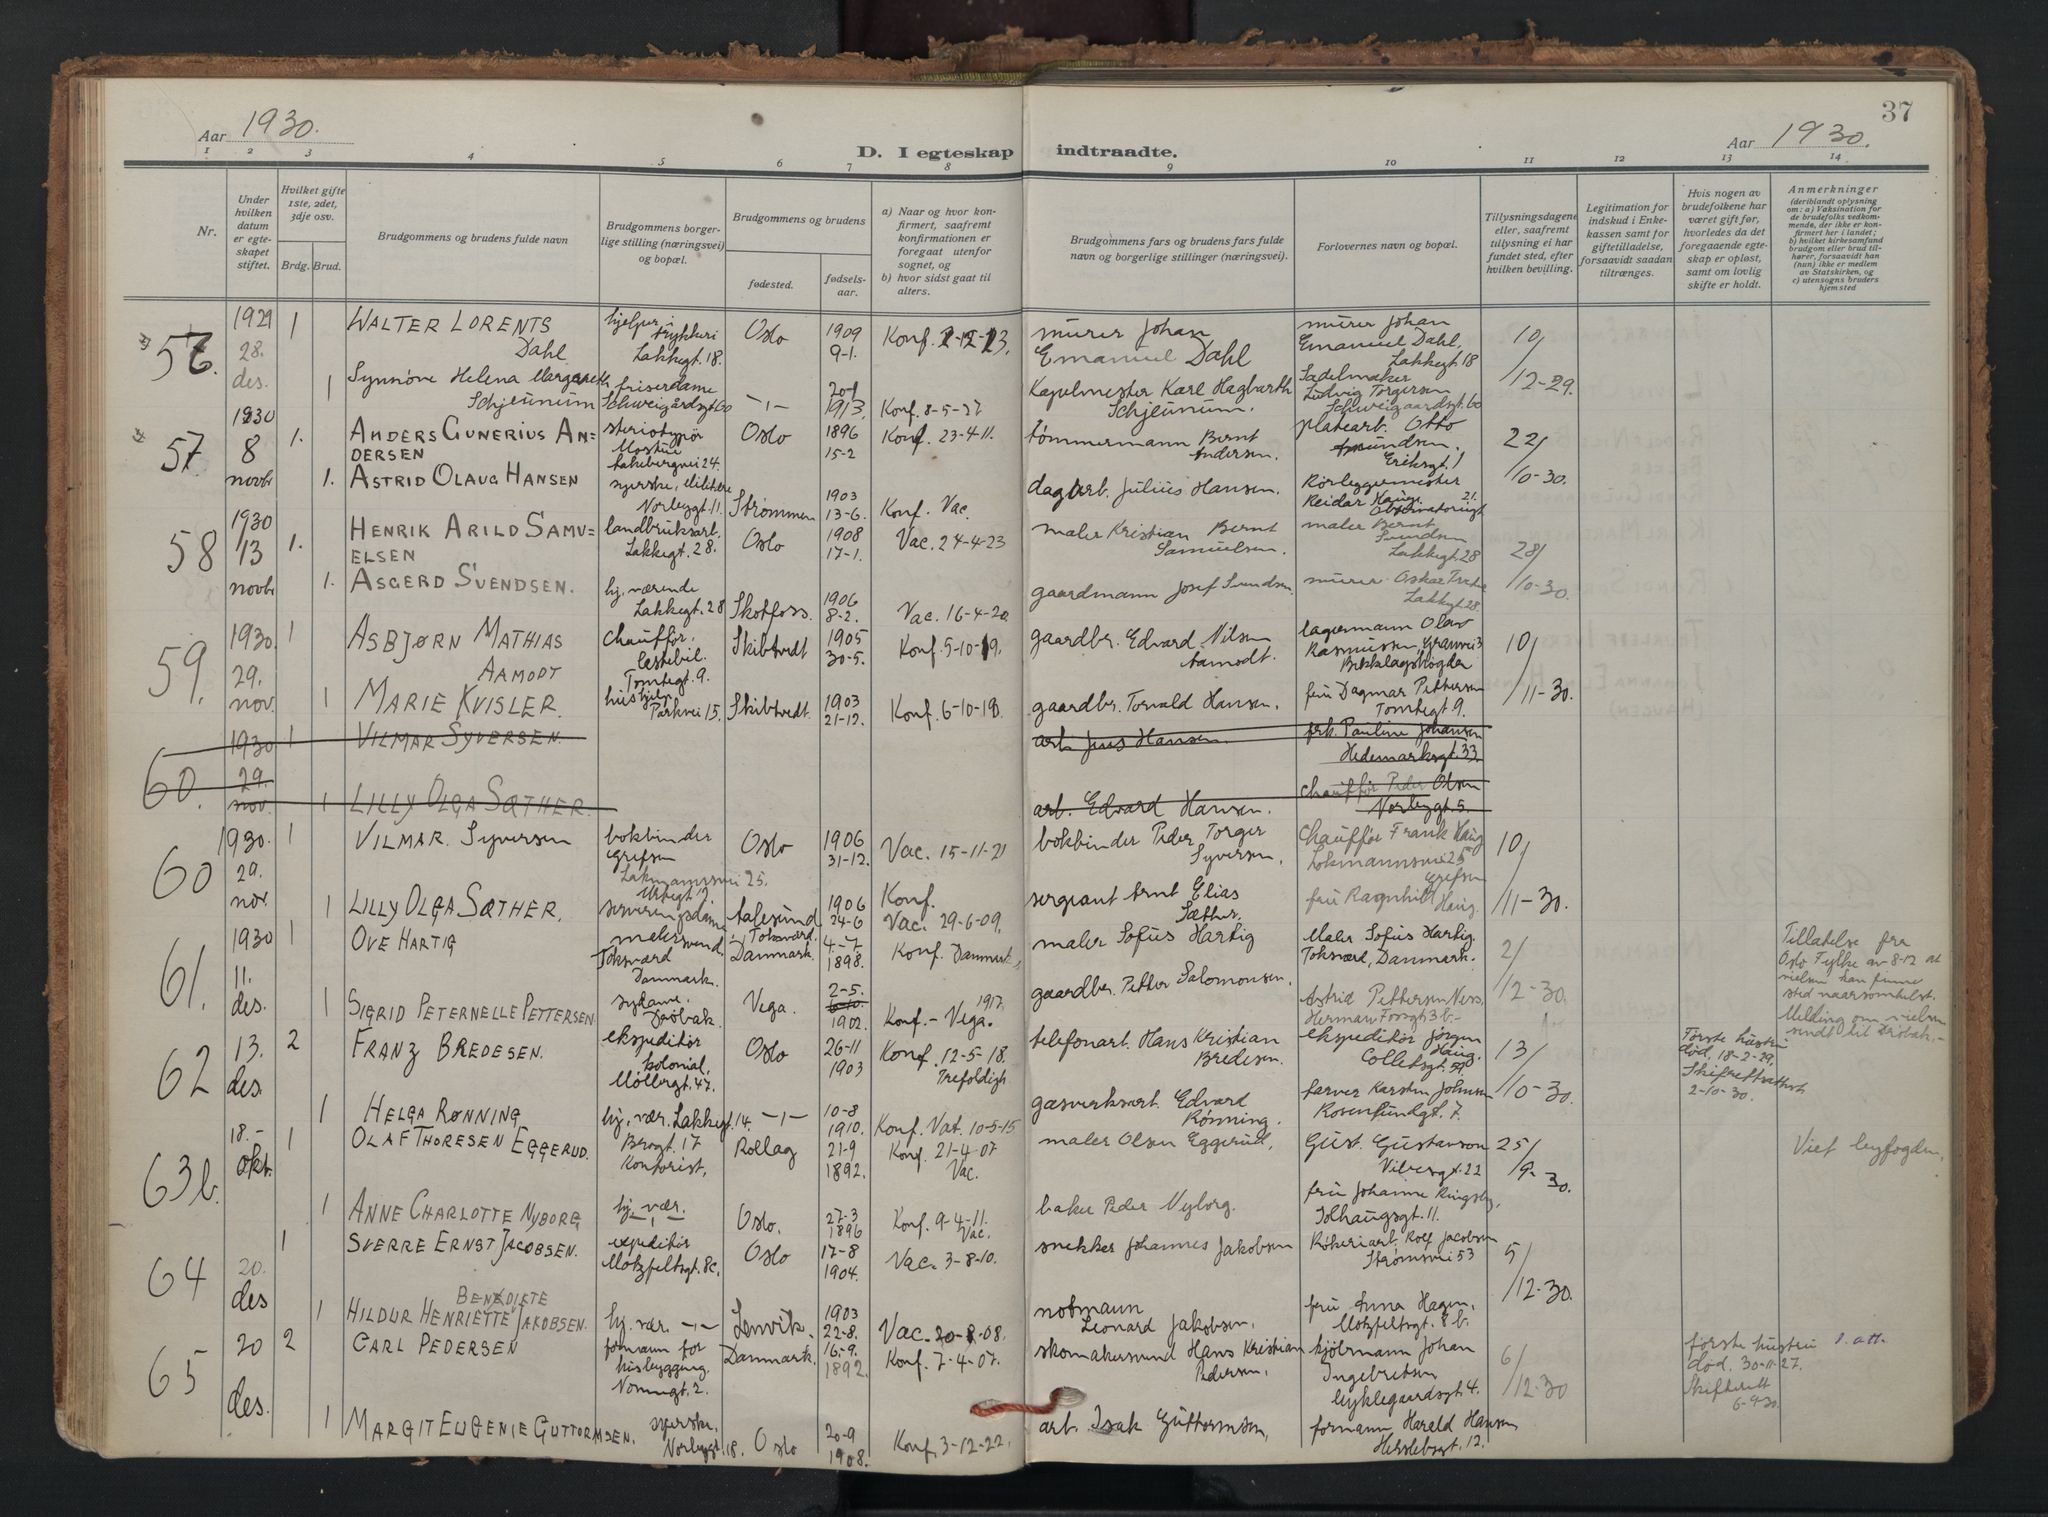 37
Aar 1930.
D. I egteskap indtraadte.
Aar 1930.
1 2 3 4 5 6 7 8 9 10 11 12 13 14
Nr.
Under hvilken datum er egteskapet stiftet.
Hvilket gifte 1ste, 2det, 3dje osv.
Brdg. Brud.
Brudgommens og brudens fulde navn
Brudgommens borgerlige stilling (næringsvei) og bopæl.
Brudgommens og brudens
fødested.
fødselsaar.
a) Naar og hvor konfirmert, saafremt konfirmationen er foregaat utenfor sognet, og
b) hvor sidst gaat til alters.
Brudgommens fars og brudens fars fulde navn og borgerlige stillinger (næringsvei).
Forlovernes navn og bopæl.
Tillysningsdagene eller, saafremt tillysning ei har fundet sted, efter hvilken bevilling.
Legitimation for indskud i Enkekassen samt for giftetilladelse, forsaavidt saadan tiltrænges.
Hvis nogen av brudefolkene har været gift før, hvorledes da det foregaaende egteskap er opløst, samt om lovlig skifte er holdt.
Anmerkninger
(deriblandt oplysning om: a) Vaksination for de brudefolks vedkommende, der ikke er konfirmert her i landet; b) hvilket kirkesamfund brudgom eller brud tilhører, forsaavidt han (hun) ikke er medlem av Statskirken, og c) utensogns bruders hjemsted
56. 1929 28. des. 1 WALTER LORENTS Dahl hjelper i trykkeri Lakkegt. 18. Oslo 1909 9-1. Konf. murer Johan Emanuel Dahl murer Johan Emanuel Dahl, Lakkegt 18 10/12-29.
1 Synnøve Helena Margareth Schjeunum friserdame Schweigårdsgt 60 -"- 20-1 1913. Konf. 8-5-27 Kapelmester Karl Hagbarth Schjeunum. Sadelmaker Ludvig Torgersen Schweigaardsgt. 60
57. 1930 8 novbr 1. ANDERS GUNERIUS ANDERSEN steriotypør Oslo 1896 15-2 Konf. 23-4-11. tømmermann Bernt Andersen. platearb. Otto Amundsen. Eriksgt. 1 22/10-30.
1. ASTRID OLAUG HANSEN syerske, Norbygt. 11. Strømmen 1903 13-6. Konf. Vac. dagarb. Julius Hansen. Rørleggermester Reidar Hauge Observatoriegt 21.
58 1930 13 novbr 1. HENRIK ARILD SAMUELSEN landbruksarb. Lakkegt. 28. Oslo 1908 17-1. Vac. 24-4-23 maler Kristian Bernt Samuelsen. maler Bernt Svendsen Lakkegt 28 28/10-30.
1. ASGERD SVENDSEN. hj. værende Lakkegt. 28 Skotfoss. 1906 8-2. Vac. 16-4-20. gaardmann Josef Svendsen murer Oskar Lakkgt. 28.
59. 1930. 29. nov. 1 ASBJØRN MATHIAS AAMODT chauffør, lastebil. Tomtegt. 9. Skibtvedt 1905 30-5. Konf. 5-10-19. gaardbr. Edvard Nilsen Aamodt. lagermann Olav Rasmussen, Granvei 3 Bekkelagshøgda 10/11-30.
1 MARIE KVISLER. hushjelp Parkvei 15. Skibtvedt 1903 21-12. Konf. 6-10-18. gaardbr. Torvald Hansen. fru Dagmar Pettersen Tomtegt 9.
60. 1930 29. nov. 1 VILMAR SYVERSEN. arb. Jens Hansen frk. Pauline Johansen Hedemarksgt. 33.
1 LILLY OLGA SÆTHER. arb. Edvard Hansen. chauffør Peder Olsen Norbygt 5.
60 1930. 29. nov. 1 VILMAR Syversen bokbinder Grefsen Lokmannsvei 25. Oslo 1906 31-12. Vac. 15-11-21 bokbinder Peder Torger Syversen. Chauffør Frank Haug Lokmannsvei 25 Grefsen 10/11-30.
1 LILLY OLGA SÆTHER. Urtegt 2. serveringsdame Aalesund 1906 24-6 Konf. Vac. 29-6-09. sergeant Arnt Elias Sæther. fru Ragnhild Haug.
61. 1930 11. des. 1 OVE HARTIG malersvend Toksværd Danmark. Toksværd. Danmark. 4-7 1898. Konf. Danmark maler Sofus Hartig Maler Sofus Hartig. Toksværd, Danmark. 2/12-30. Tillatelse fra Oslo Fylke av 8-12 at vielsen kan finne sted naarsomhelst. Melding om vielsen sendt til Drøbak.-
1 SIGRID PETERNELLE PETTERSEN sydame. Drøbak. Vega. 2-5. 1902. Konf. - Vega. 1917. gaardbr. Petter Salomonsen. Astrid Pettersen Ness, Herman Fossgt 3 b.-
62 13. des. 2 FRANZ BREDESEN. ekspeditør kolonial. Møllergt. 47. Oslo 26-11 1903 Konf. 12-5-18. Trefoldigh. telefonarb. Hans Kristian Bredesen. ekspeditør Jørgen Haug. Colletsgt. 59. 13/10-30. Første hustru død. 18-2-29. Skifterettattest 2-10-30.
1 HELGA RØNNING hj. vær. Lakkegt. 14. -"- 10-8 1910. Konf. Vat. 10-5-15 gasverksarb. Edvard Rønning. farver Karsten Johnsen Rosenlundgt. 7.
63b. 18.- okt. 1 OLAF THORESEN EGGERUD. Brogt. 17 Kontorist, Rollag 21-9 1892. Konf. 21-4-07 Vac. maler Olsen Eggerud. Gust. Gustavson Vibesgt. 22 25/9-30. Viet byfogden.
1 ANNE CHARLOTTE NYBORG hj. vær. Oslo. 27-3 1896 Konf. 9-4-11. Vac. baker Peder Nyborg. fru Johanne Ringsby, Solhaugsgt. 11.
64 20. des 1 SVERRE ERNST JACOBSEN. expeditør Motzfeltsgt. 8c. Oslo 17-8 1904. Vac. 3-8-10. snekker Johannes Jakobsen Røkeriarb. Rolf Jacobsen Strømsvei 53 5/12-30.
1 HILDUR HENRIETTE BENEDIKTE JAKOBSEN. hj. vær. -"- Lenvik. 1903 22-8. Vac. 20-8-08. notmann Leonard Jakobsen. fru Anna Hagen, Motzfeltsgt. 8 b.
65 20 des. 2 CARL PEDERSEN formann for husbygging. Nonnegt. 2. Danmark. 16-9. 1892. Konf. 7-4-07. skomakersvend Hans Kristian Pedersen. kjølmann Johan Ingebretsen Nyklegaardsgt. 4. 6/12-30 første hustru død. 30-11-27. Skifterett 6-9-30. 1. att.
1 MARGIT EUGENIE GUTTORMSEN. syerske. Norbygt. 18. Oslo 20-9 1908. Konf. 3-12-22. arb. Isak Guttormsen, formann Harald Hansen Herslebsgt. 12.